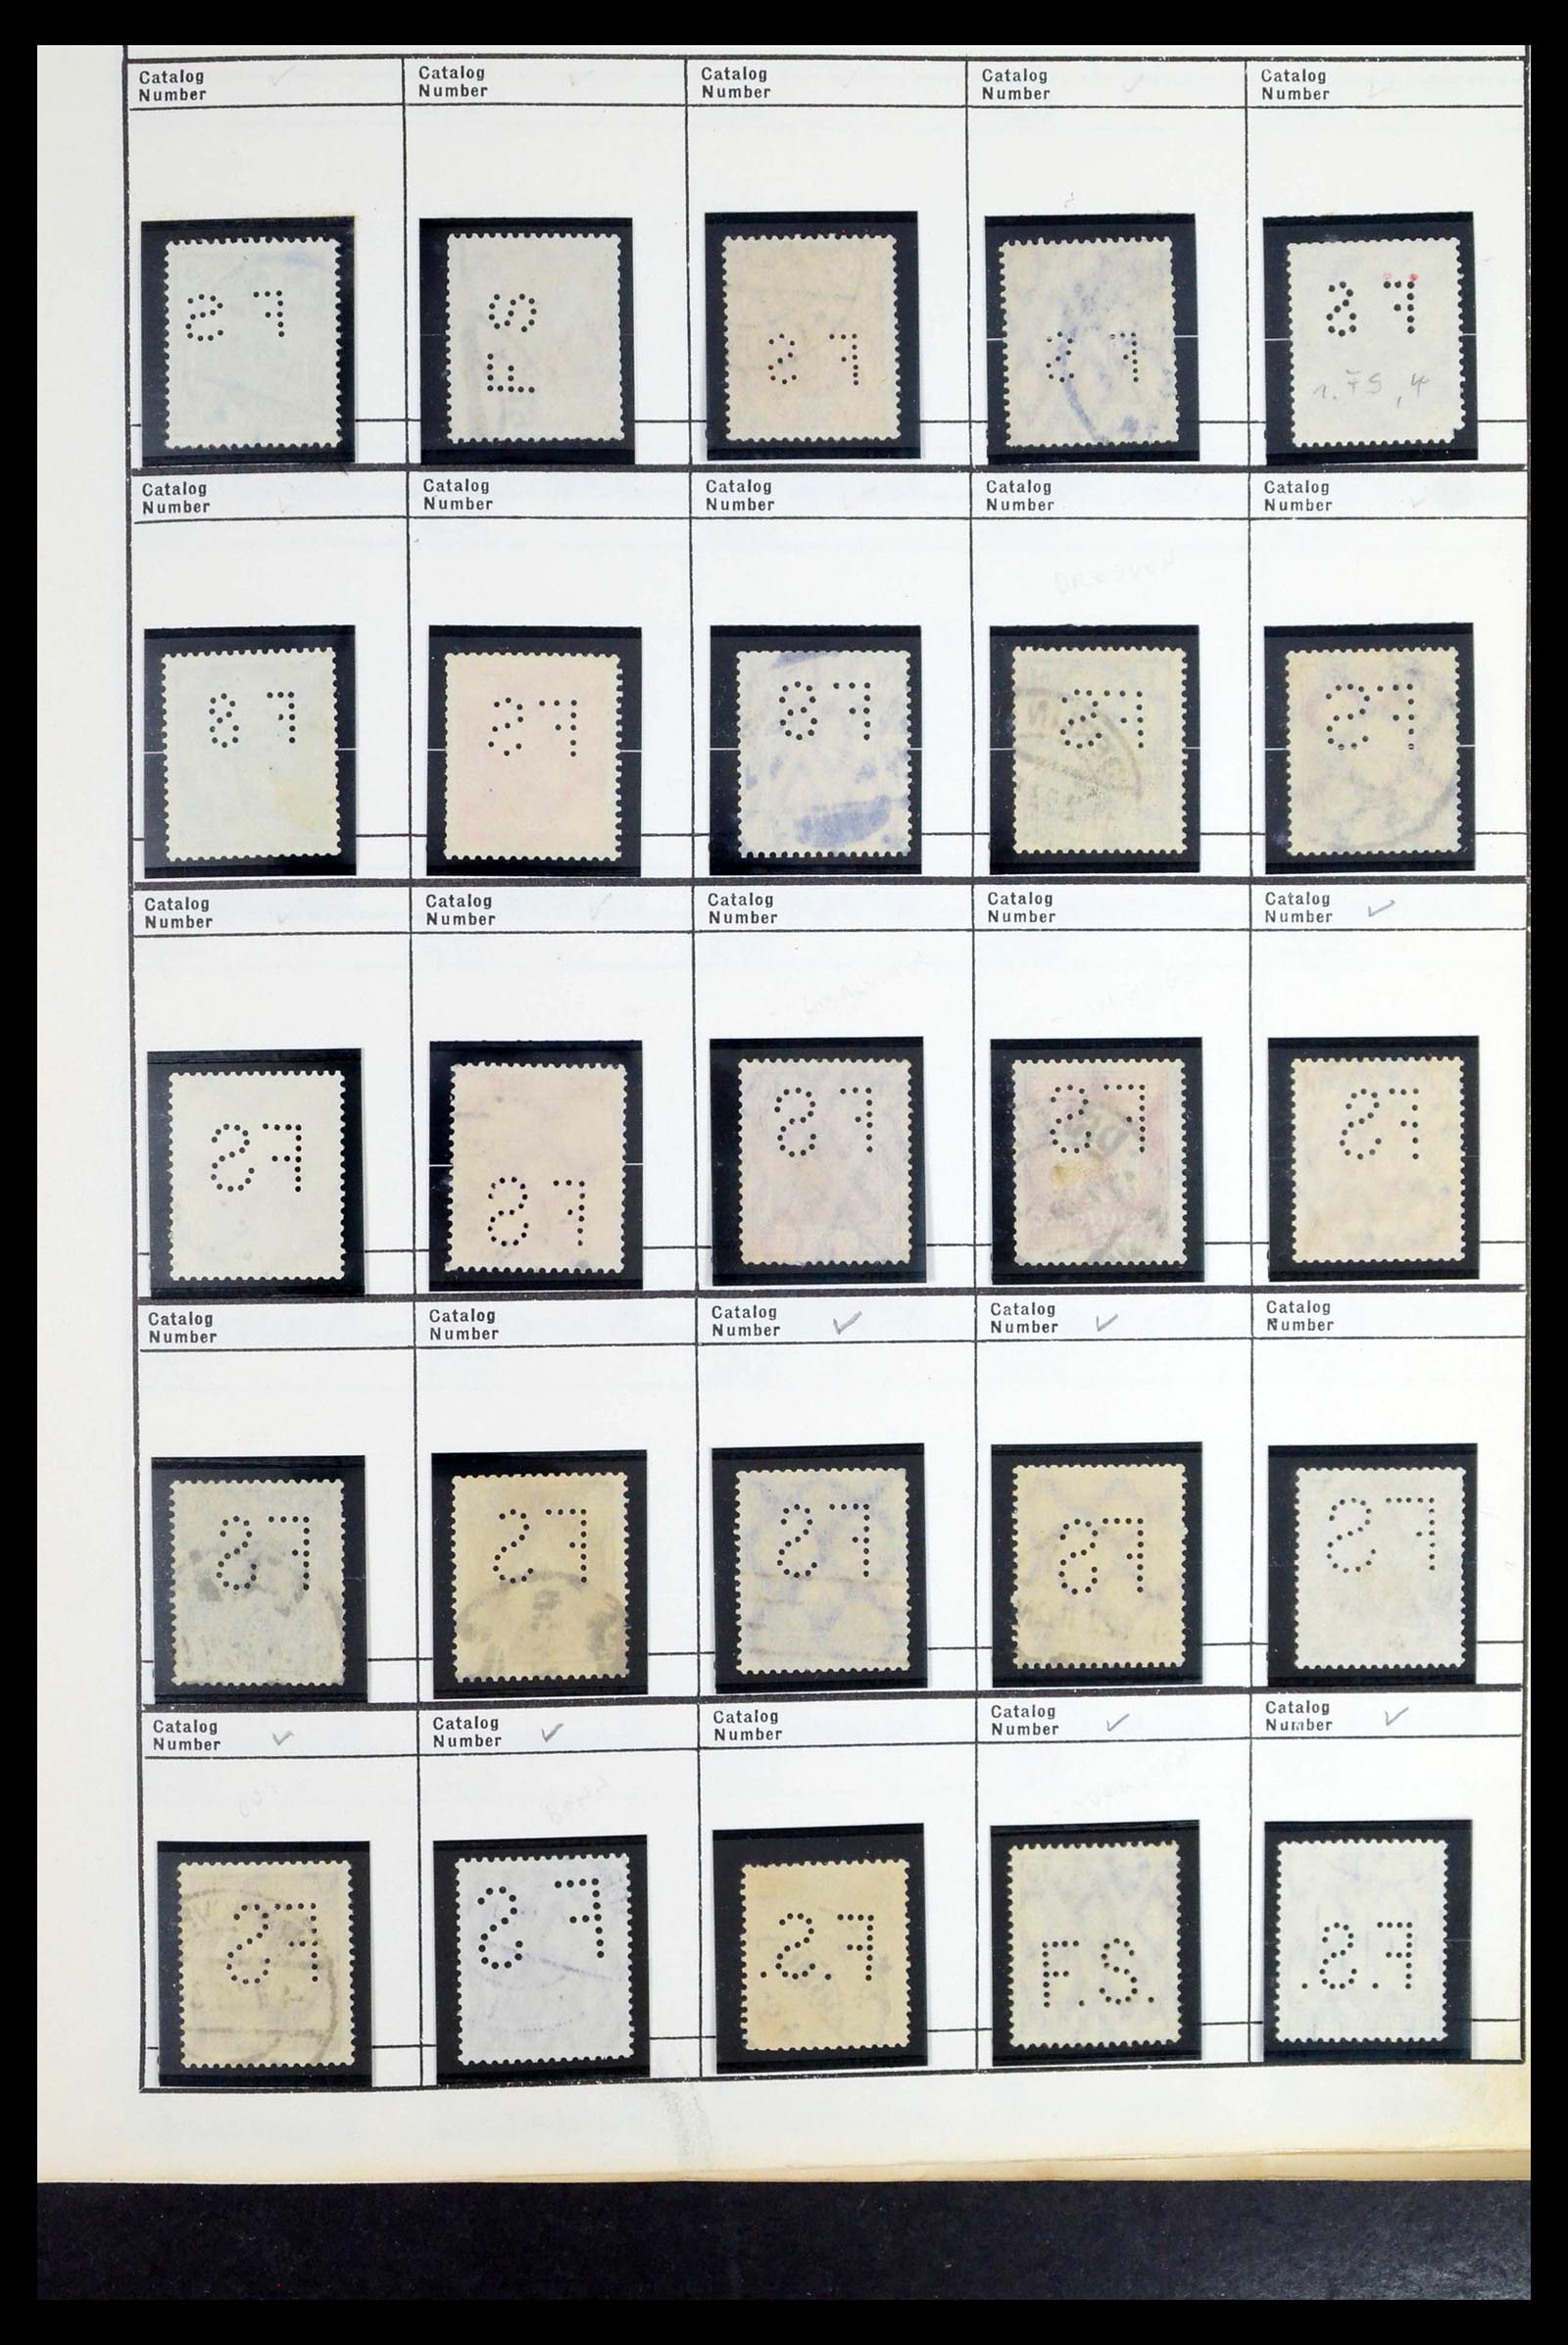 Catalog Number
Catalog Number
Catalog Number
Catalog Number
Catalog Number
FS
FS
FS
FS
FS
1. FS, 4
Catalog Number
Catalog Number
Catalog Number
Catalog Number
Catalog Number
DRESDEN
FS
FS
FS
FS
FS
Catalog Number
Catalog Number
Catalog Number
Catalog Number
Catalog Number
FS
FS
FS
FS
FS
Catalog Number
Catalog Number
Catalog Number
Catalog Number
Catalog Number
FS
FS
FS
FS
FS
Catalog Number
Catalog Number
Catalog Number
Catalog Number
Catalog Number
FS
FS
F.S.
F.S.
F.S.